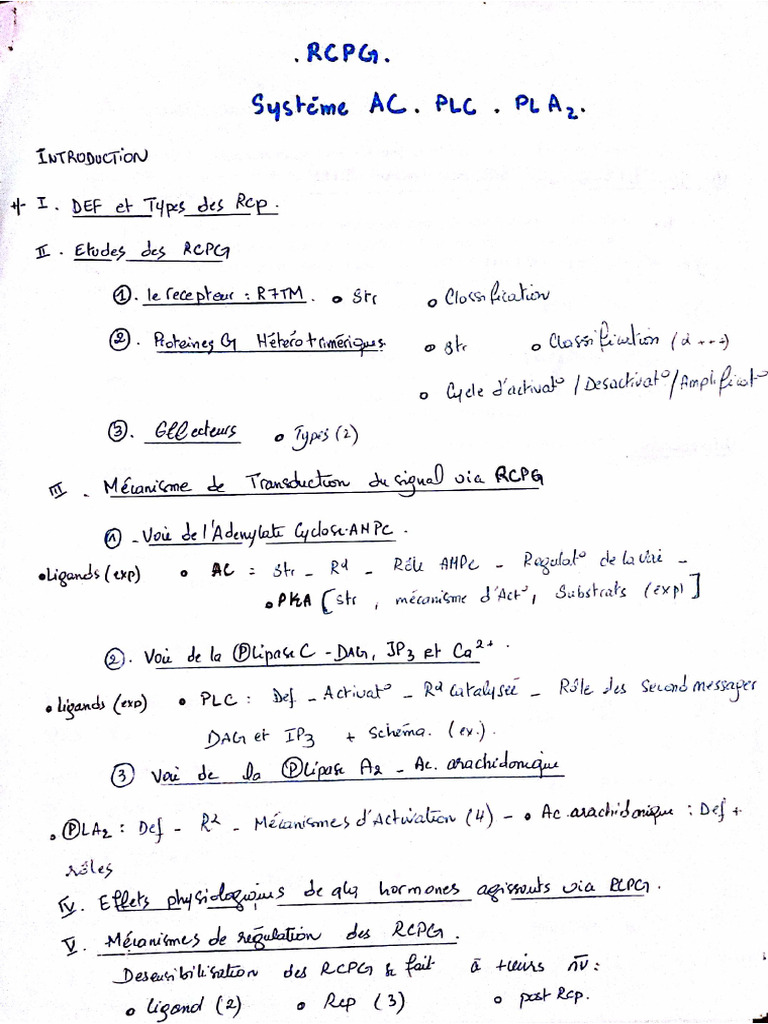 . RCPG.
Système AC. PLC. PLA₂.
INTRODUCTION
I. DEF et Types des Rcp.
II. Etudes des RCPG
①. le recepteur : R7TM. • Str • Classification
②. Proteines G Hétérotrimériques. • Str • Classification (α ---)
• Cycle d'activat° / Desactivat° / Amplificat°
③. Effecteurs • Types (2)
III. Mécanisme de Transduction du signal via RCPG
① - Voie de l'Adenylate Cyclase-AMPC.
• Ligands (exp) • AC : Str - R° - Rôle AMPc - Regulat° de la voie -
• PKA [Str, mécanisme d'Act°, Substrats (exp)]
②. Voie de la Ⓟlipase C - DAG, IP3 et Ca²⁺.
• ligands (exp) • PLC : Def - Activat° - R° Catalysée - Rôle des Second messager
DAG et IP3 + Schéma. (ex.).
③ Voie de la Ⓟlipase A2 - Ac. arachidonique
• ⓅLA₂ : Def - R° - Mécanismes d'Activation (4) - • Ac. arachidonique : Def +
rôles
IV. Effets physiologiques de qlq hormones agissants via RCPG.
V. Mécanismes de régulation des RCPG.
Desensibilisation des RCPG se fait à +ieurs nv̄ :
• ligand (2) • Rcp (3) • post Rcp.